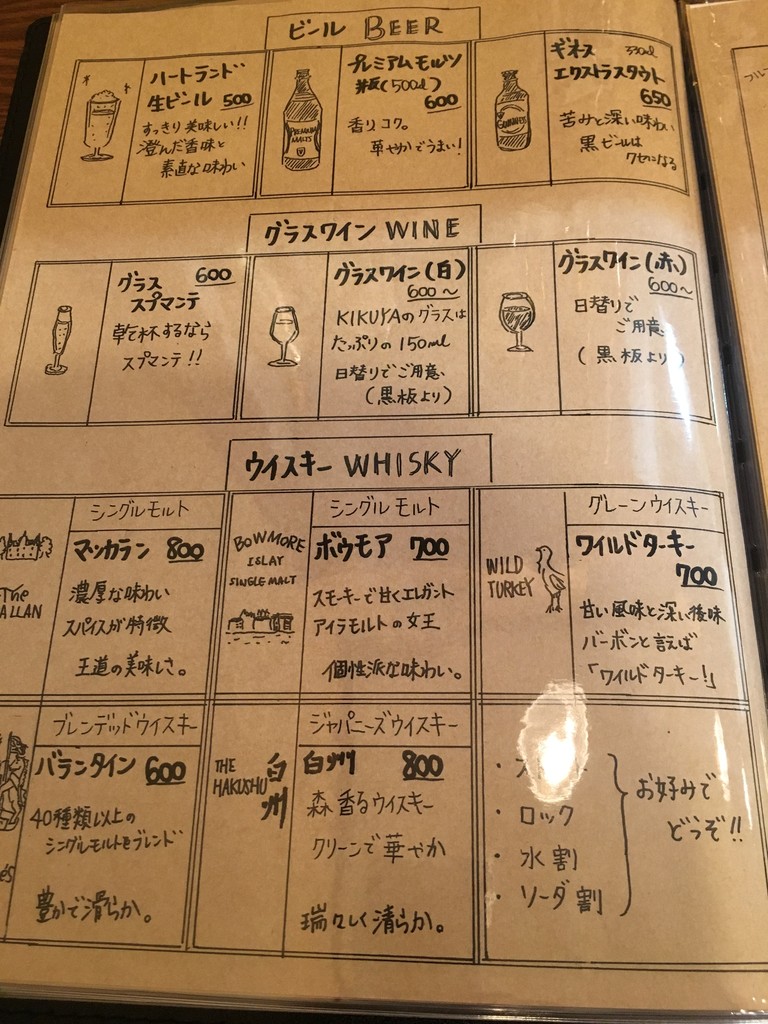 ビール BEER
ハートランド
生ビール 500
すっきり美味しい!!
澄んだ香味と
素直な味わい
PREMIUM
MALTS
プレミアムモルツ
(500ml)
600
香り コク。
華やかでうまい!
GUINNESS
ギネス 330ml
エクストラスタウト
650
苦みと深い味わい
黒ビールは
クセになる
グラスワイン WINE
グラス 600
スプマンテ
乾杯するなら
スプマンテ!!
グラスワイン(白)
600~
KIKUYAのグラスは
たっぷりの150ml
日替りでご用意
(黒板より)
グラスワイン(赤)
600~
日替りで
ご用意
(黒板より)
ウイスキー WHISKY
The
ALLAN
シングルモルト
マッカラン 800
濃厚な味わい
スパイスが特徴
王道の美味しさ。
BOWMORE
ISLAY
SINGLE MALT
シングルモルト
ボウモア 700
スモーキーで甘くエレガント
アイラモルトの女王
個性派な味わい。
WILD
TURKEY
グレーンウイスキー
ワイルドターキー
700
甘い風味と深い後味
バーボンと言えば
「ワイルドターキー!」
ブレンデッドウイスキー
バランタイン 600
40種類以上の
シングルモルトをブレンド
豊かで滑らか。
THE
HAKUSHU
白州
ジャパニーズウイスキー
白州 800
森香るウイスキー
クリーンで華やか
瑞々しく清らか。
・ロック
・水割
・ソーダ割
お好みで
どうぞ!!